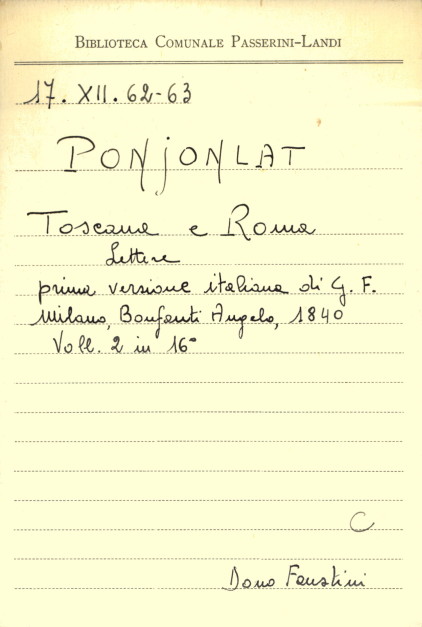 BIBLIOTECA COMUNALE PASSERINI-LANDI
17. XII. 62-63
PONJONLAT
Toscana e Roma
Lettere
prima versione italiana di G. F.
Milano, Bonfanti Angelo, 1840
Voll. 2 in 16°
C
Dono Faustini